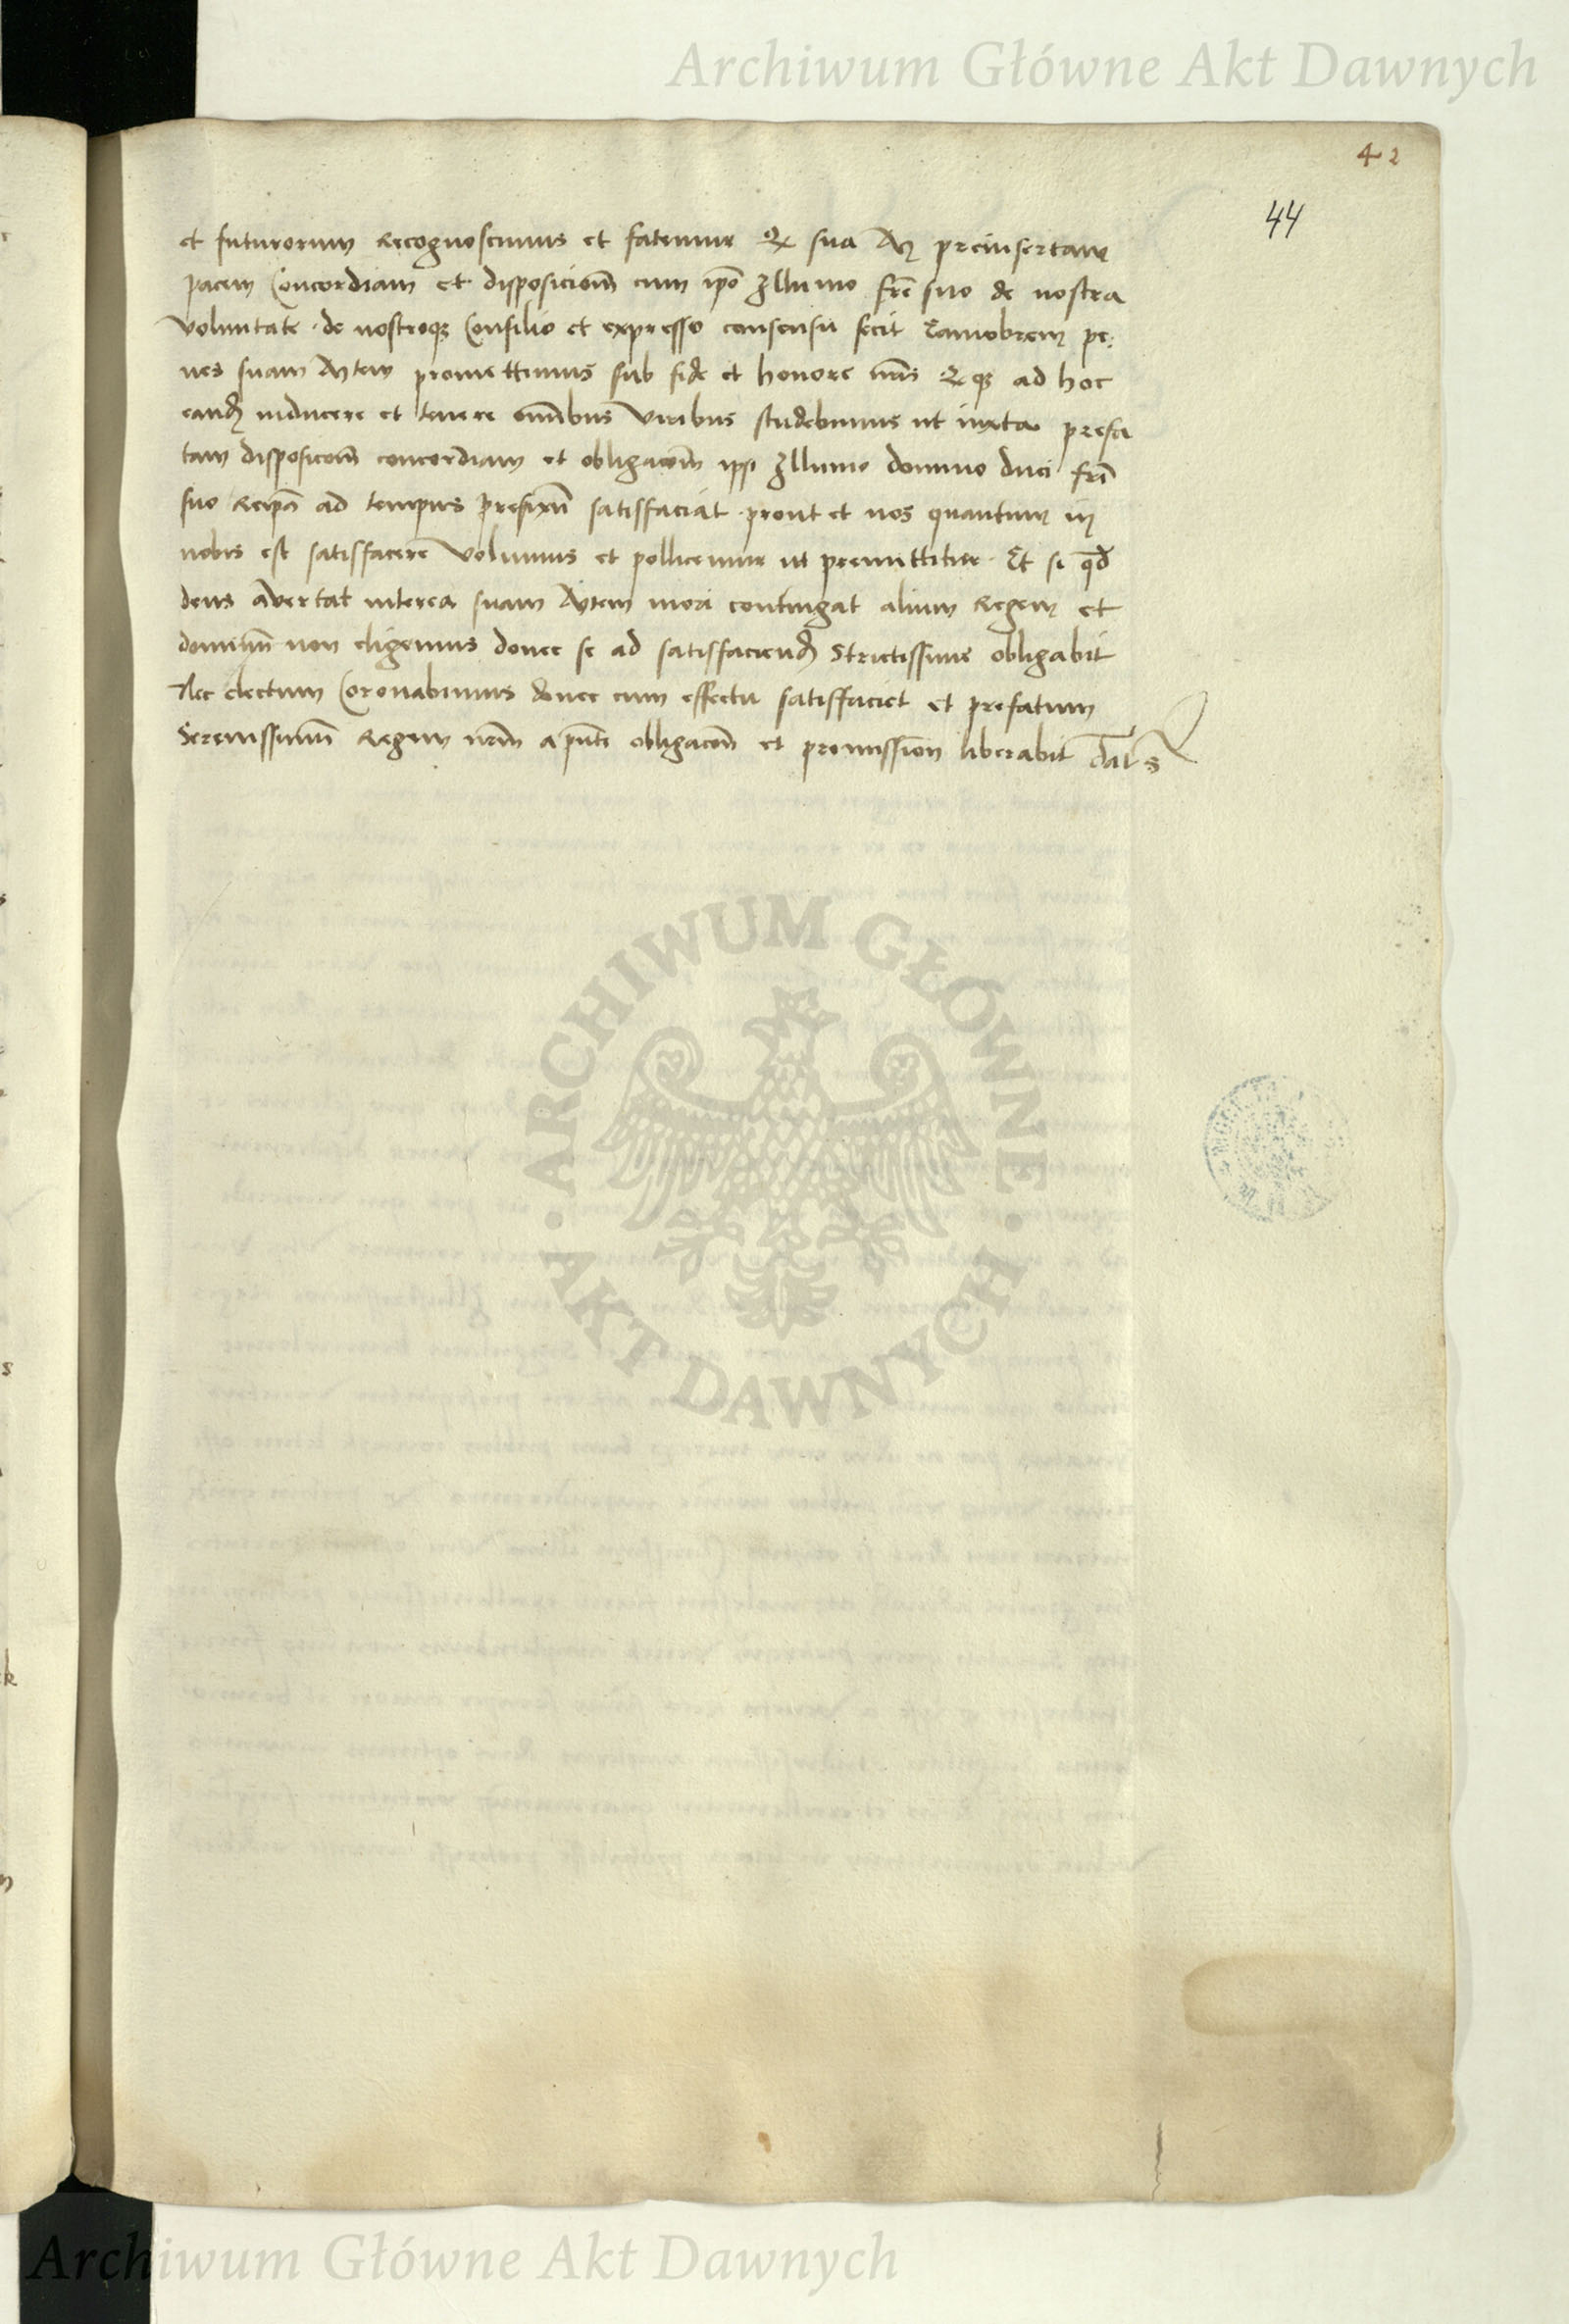 Archiwum Główne Akt Dawnych
42
44
et futurorum recognoscimus et fatemur Qz sua Mtas preinsertam
pacem Concordiam et disposicionem cum ipo Illumo fre suo de nostra
voluntate de nostroqz Consilio et expresso consensu fecit Quamobrem pe:
nes suam Mtem promittimus sub fide et honore nris Qz ad hoc
eand inducere et tenere omnibus viribus studebimus ut iuxta prefa
tam disposicom concordiam et obligacom ipsi Illumo domino duci fri
suo ad tempus prefixu satisfaciat prout et nos quantum in
nobis est satisfacere volumus et pollicemur ut premittitur Et si qd
deus avertat interea suam Mtem mori contingat alium Regem et
dominum non eligemus donec se ad satisfaciend strictissime obligabit
Nec electum Coronabimus donec cum effectu satisfaciet et prefatum
Serenissimu Regem nrm a pnti obligacom et promission liberabit Dat s
ARCHIWUM GŁÓWNE AKT DAWNYCH
Archiwum Główne Akt Dawnych